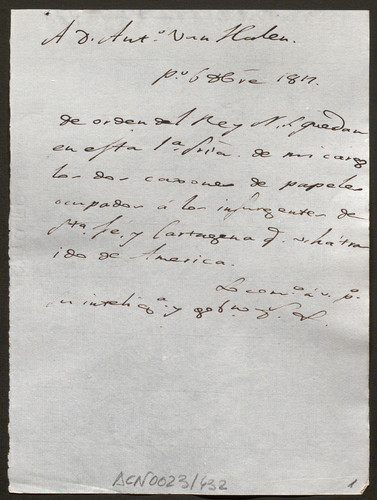 A D. Ant.º Van Halen.
P.º 6 Dbre 1817.
De orden del Rey N. S. quedan
en esta 1.ª Sria. de mi cargo
los dos caxones de papeles
ocupados á los insurgentes de
Sta Fe, y Cartagena q. v. ha tra
ido de America.
Lo com.º á v. p.ª
su intelig.ª y gob.no D. g.
ACN0023/432
1